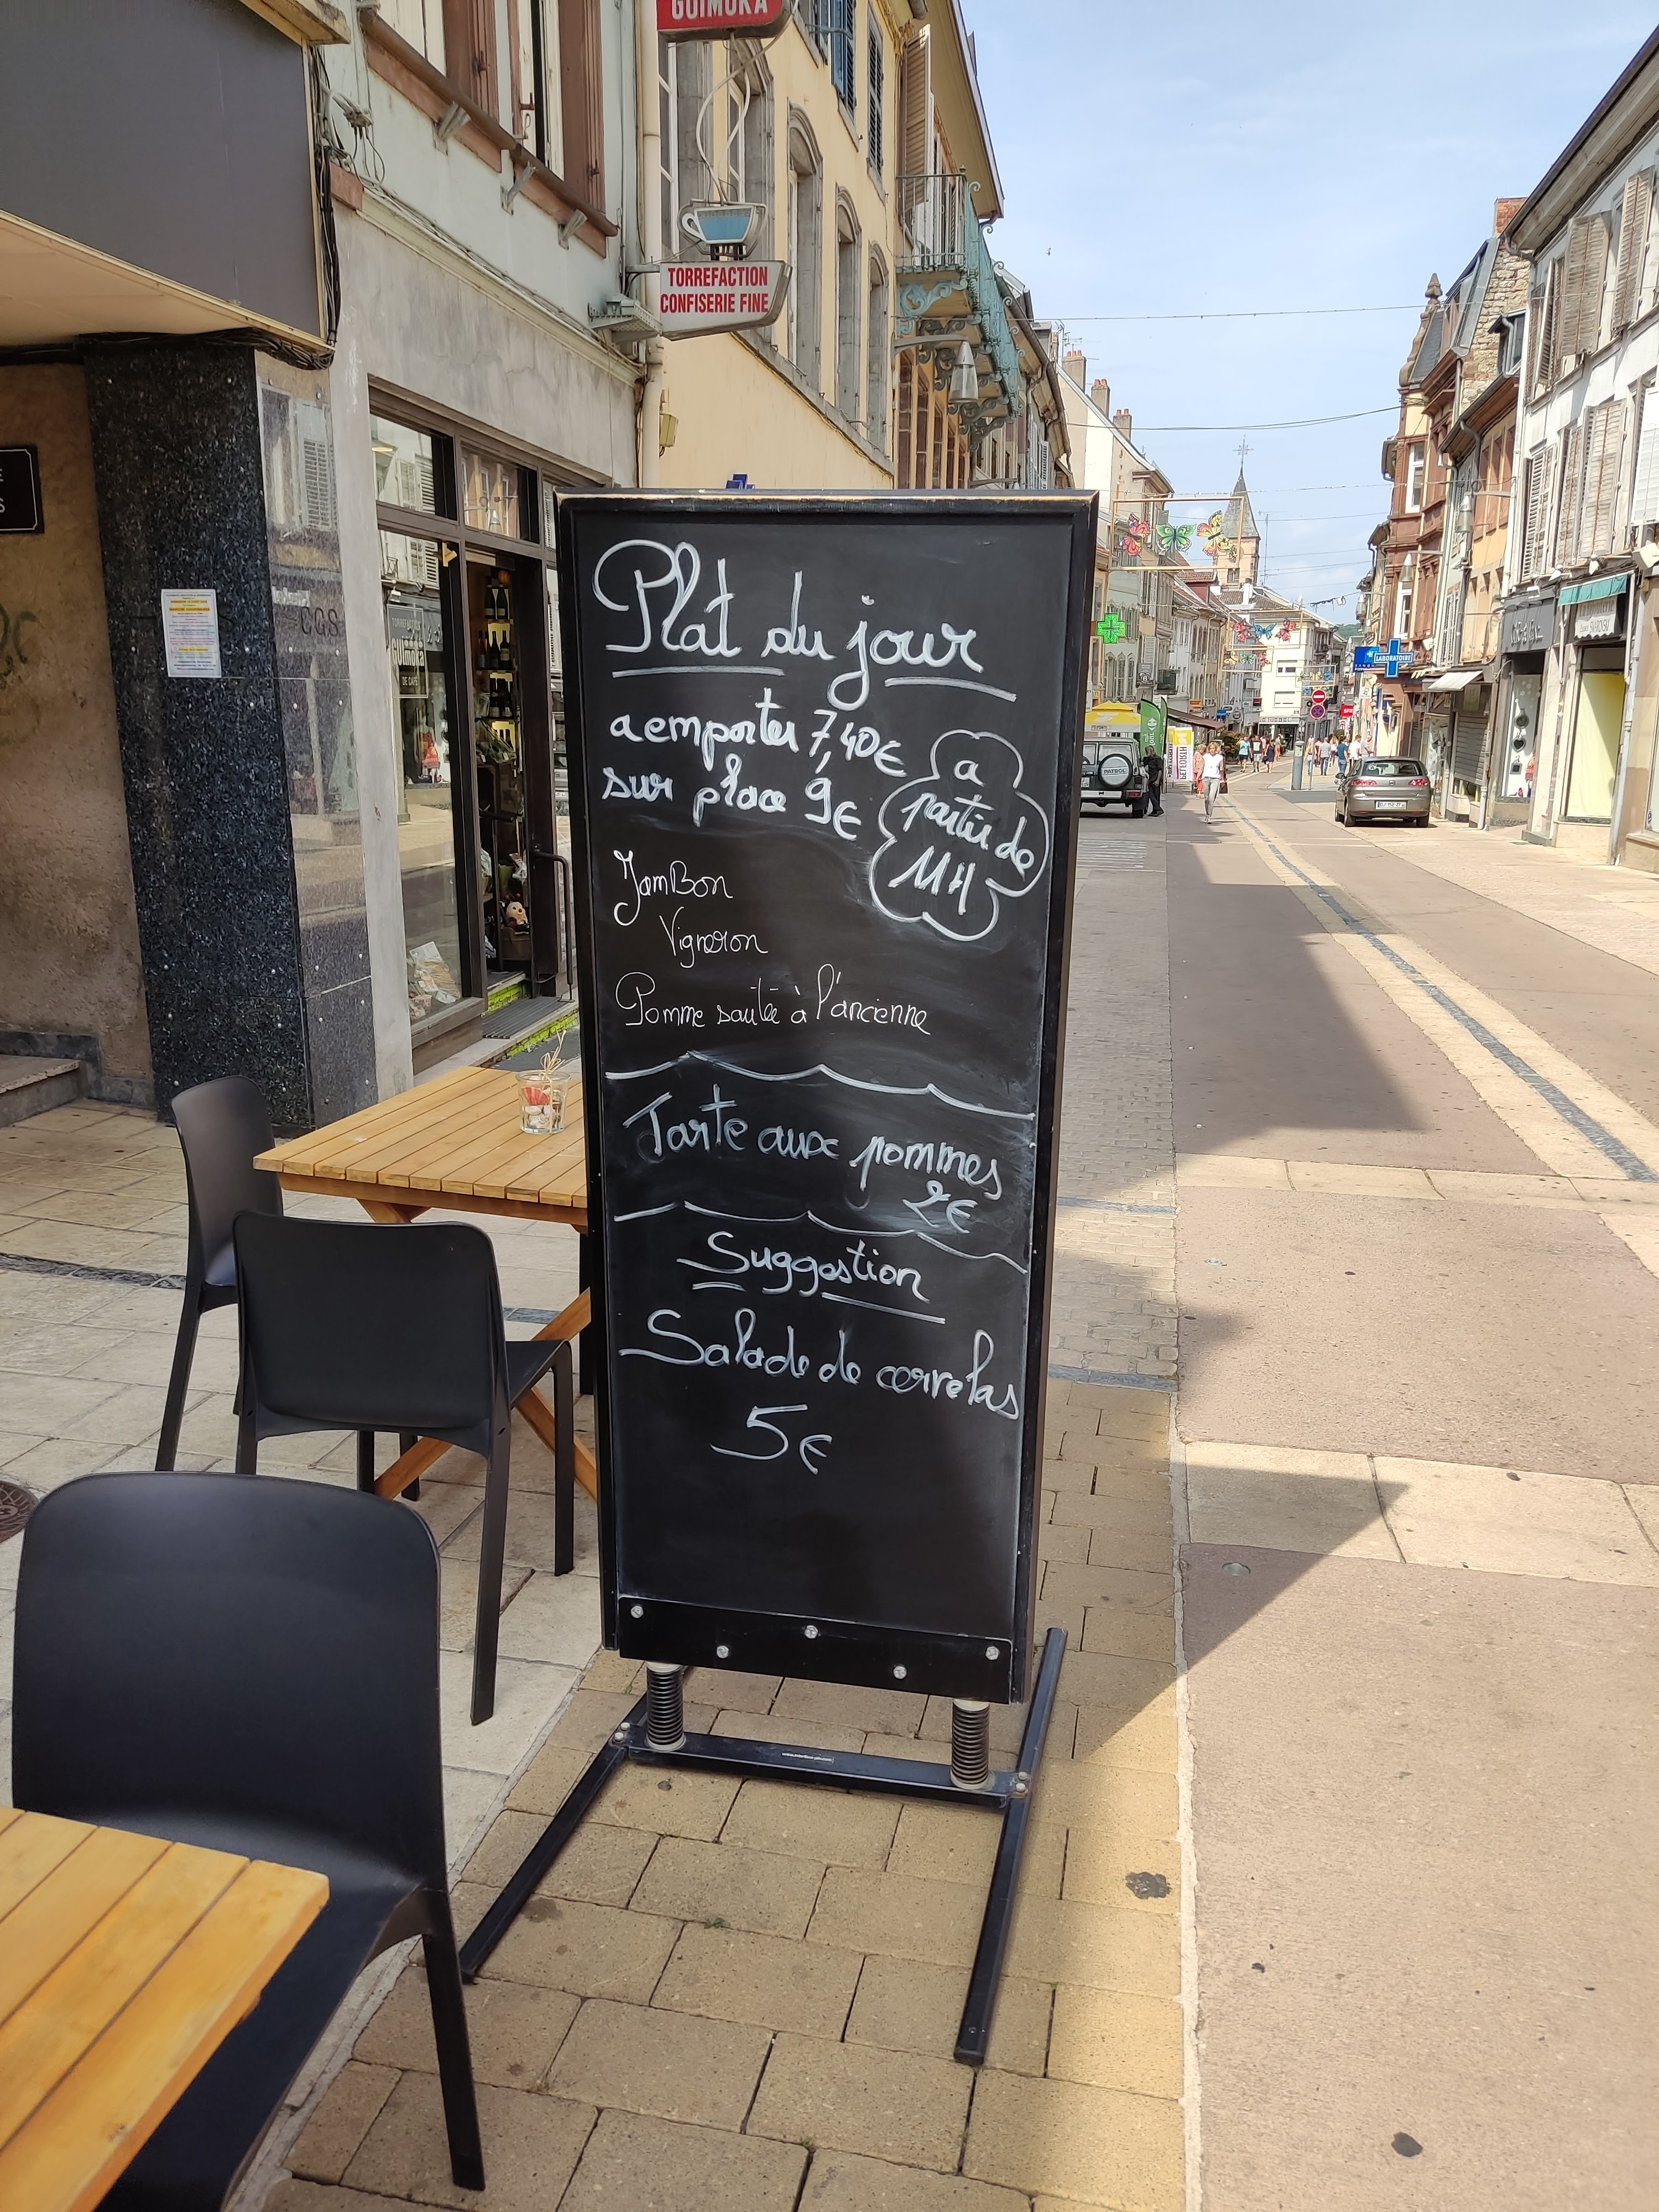 GUIMOKA
TORREFACTION
CONFISERIE FINE
Plat du jour
a emporter 7,40€
sur place 9€
a
partir de
11H
JamBon
Vigneron
Pomme sautée à l'ancienne
Tarte aux pommes
2€
Suggestion
Salade de cervelas
5€
LABORATOIRE
PATROL
DE CAFÉ